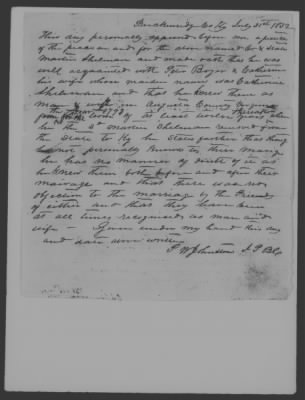 Breckinridge Co Ky July 31st 1852
This day personally appeared before me a justice
of the peace in and for the above named Co & State
Martin Shelman and made oath that he was
well acquainted with Peter & Catherine
his wife whose maiden name was Catherine
Shelman and that he knew them as
man & wife in Augusta County Virginia
from the of at least years when
he the sd Martin Shelman removed from
the State to Ky he States further that though
not personally known to their marriage
he has no manner of doubt of it as
he knew them both before and after their
marriage and that there was no
objection to the marriage by the friends
of either and that they have been
at all times recognised as man and
wife — Given under my hand this day
and date above written
J. P. B. C.